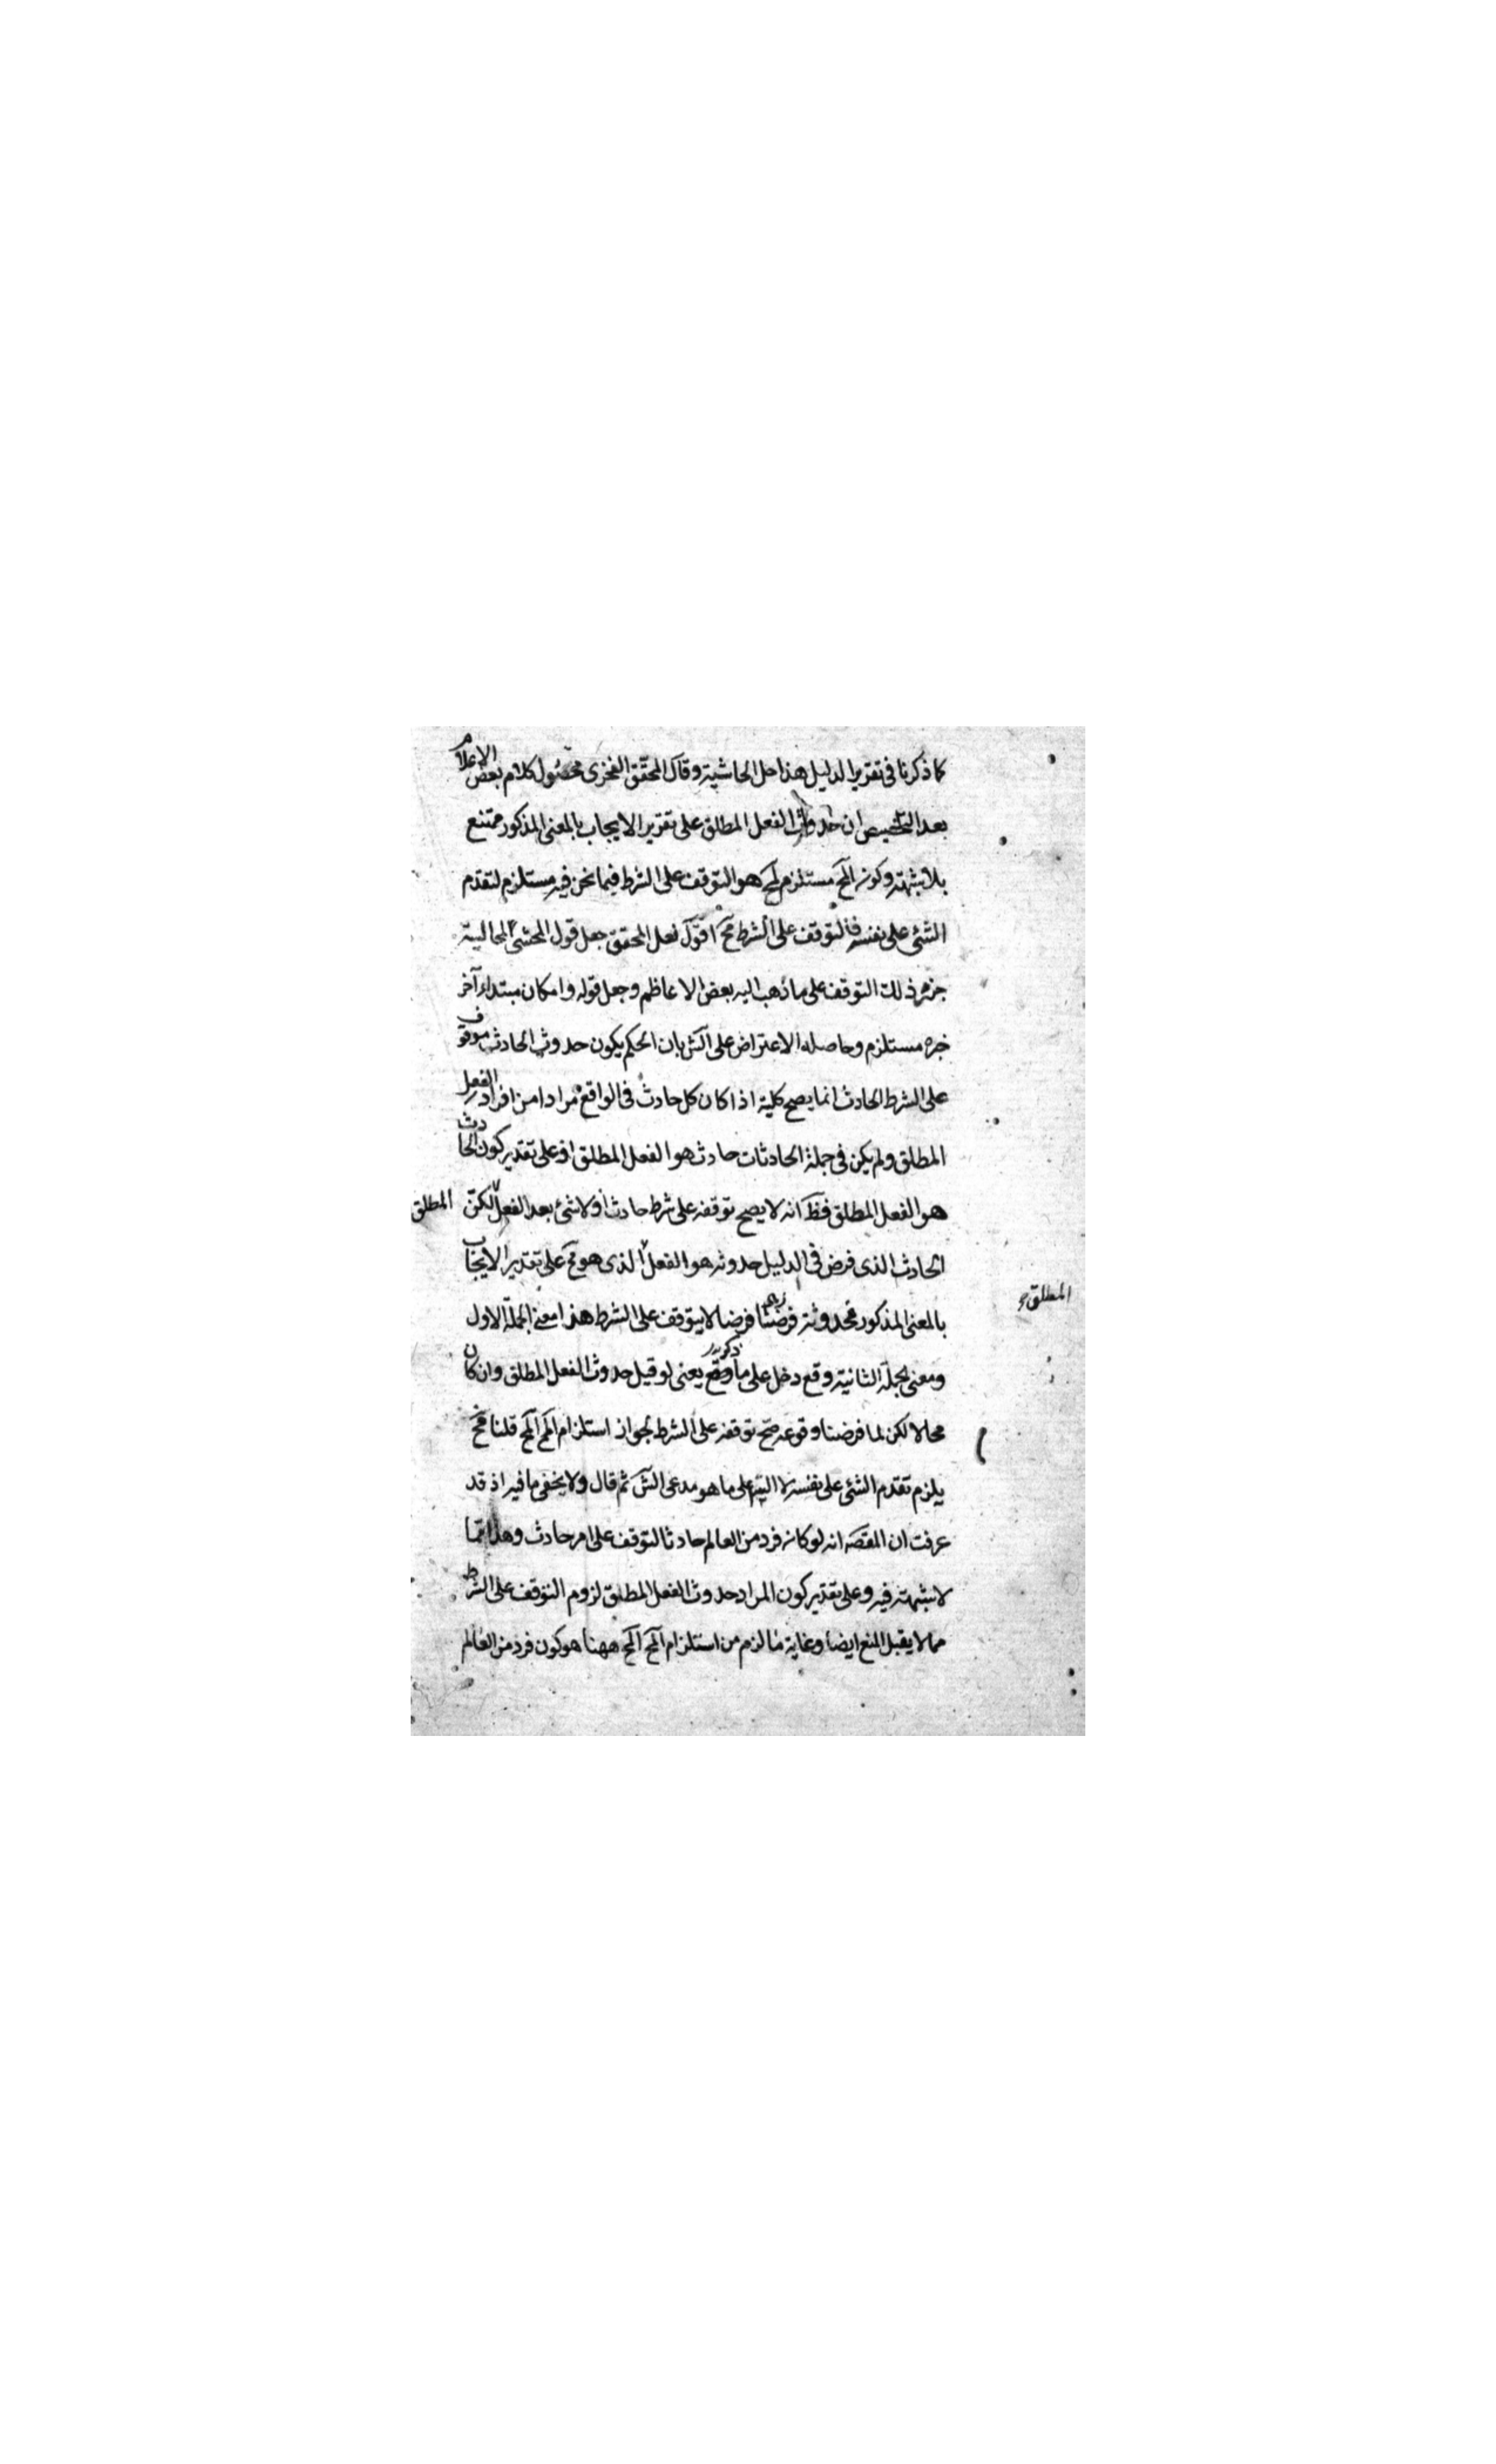 كما ذكرنا فى تقرير الدليل هذا حل الحاشية وقال المحقق الفخرى محصول كلام بعض الاعلام
بعد التلخيص ان حدوث الفعل المطلق على تقرير الايجاب بالمعنى المذكور ممتنع
بلا شبهة وكونه المح مستلزم لمح هو التوقف على الشرط فيما نحن فيه مستلزم لتقدم
الشئ على نفسه فالتوقف على الشرط مح اقول لعل المحقق جعل قول المحشى المحالية
جزء ذلك التوقف على ما ذهب اليه بعض الاعاظم وجعل قوله وامكان مبتداء آخر
خبره مستلزم وحاصله الاعتراض على الش بان الحكم بكون حدوث الحادث موقوف
على الشرط الحادث انما يصح كلية اذا كان كل حادث فى الواقع مرادا من افراد الفعل
المطلق ولم يكن فى جملة الحادثات حادث هو الفعل المطلق اذ على تقدير كون الحادث
هو الفعل المطلق فظ انه لا يصح توقفه على شرط حادث اذ لا شئ بعد الفعل المطلق لكن
الحادث الذى فرض فى الدليل حدوثه هو الفعل الذى هو مح على تقدير الايجاب
المطلق
بالمعنى المذكور فحدوثه فرضنا فرضا لا يتوقف على الشرط هذا معنى الجملة الاول
ومعنى الجملة الثانية وقع دخل على ما وقع يعنى لو قيل حدوث الفعل المطلق وان كان
محالا لكن لما فرضنا وقوعه صح توقفه على الشرط لجواز استلزام المح المح قلنا فح
يلزم تقدم الشئ على نفسه لا البتة على ما هو مدعى الش ثم قال ولا يخفى ما فيه اذ قد
عرفت ان المقصه انه لو كان فرد من العالم حادثا لتوقف على امر حادث وهذا مما
لا شبهة فيه وعلى تقدير كون المراد حدوث الفعل المطلق لزوم التوقف على الشرط
مما لا يقبل المنع ايضا وغاية ما لزم من استلزام المح المح ههنا هو كون فرد من العالم